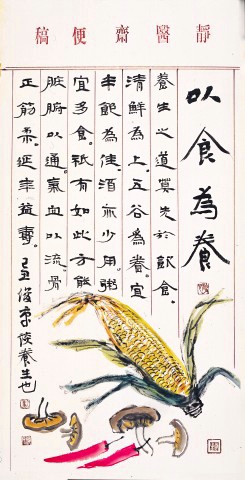 靜醫齋便稿
以食為養
養生之道莫先於飲食。
清鮮為上。五谷為養。宜
半飽為佳。酒亦少用。粥
宜多食。祇有如此方能
臟腑以通。氣血以流。骨
正筋柔。延年益壽。
養生也